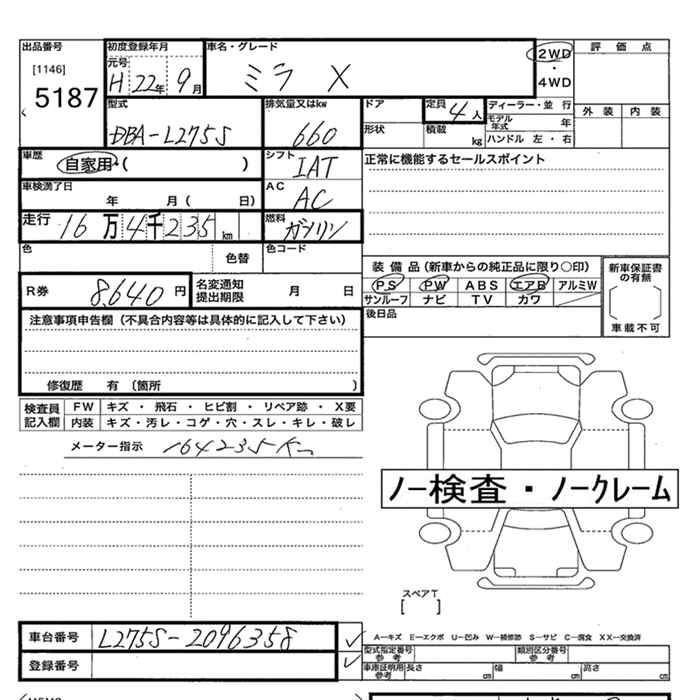 出品番号 初度登録年月 車名・グレード 2WD 評価点
[1146] 元号 H 22年 9月 ミラ X ・
5187 4WD
型式 排気量又はkw ドア 定員 4人 ディーラー・並行 外装 内装
DBA-L275S 660 形状 積載 kg モデル年式 年
ハンドル 左・右
車歴 自家用・( ) シフト IAT 正常に機能するセールスポイント
車検満了日 年 月( 日) AC AC
走行 16万4千235km 燃料 ガソリン
色 色替 色コード
装備品(新車からの純正品に限り○印) 新車保証書の有無
R券 8,640円 名変通知提出期限 月 日 PS PW ABS エアB アルミW
サンルーフ ナビ TV カワ
注意事項申告欄(不具合内容等は具体的に記入して下さい) 後日品 車載不可
修復歴 有〔箇所 〕
検査員 FW キズ・飛石・ヒビ割・リペア跡・X要
記入欄 内装 キズ・汚レ・コゲ・穴・スレ・キレ・破レ
メーター指示 164235Km
ノー検査・ノークレーム
スペアT
[ ]
車台番号 L275S-2096358
A-キズ E-エクボ U-凹み W-補修跡 S-サビ C-腐食 XX-交換済
型式指定番号 参考 類別区分番号 参考
登録番号 車庫証明用 参考 長さ cm 幅 cm 高さ cm